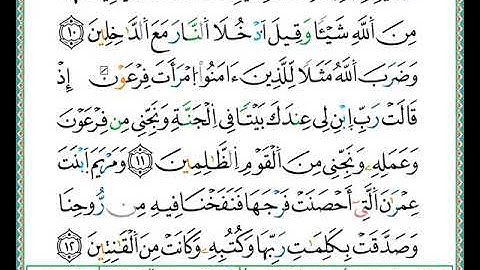 مِنَ ٱللَّهِ شَيْـًٔا وَقِيلَ ٱدْخُلَا ٱلنَّارَ مَعَ ٱلدَّٰخِلِينَ ١٠
وَضَرَبَ ٱللَّهُ مَثَلًا لِّلَّذِينَ ءَامَنُوا۟ ٱمْرَأَتَ فِرْعَوْنَ إِذْ
قَالَتْ رَبِّ ٱبْنِ لِى عِندَكَ بَيْتًا فِى ٱلْجَنَّةِ وَنَجِّنِى مِن فِرْعَوْنَ
وَعَمَلِهِۦ وَنَجِّنِى مِنَ ٱلْقَوْمِ ٱلظَّٰلِمِينَ ١١ وَمَرْيَمَ ٱبْنَتَ
عِمْرَٰنَ ٱلَّتِىٓ أَحْصَنَتْ فَرْجَهَا فَنَفَخْنَا فِيهِ مِن رُّوحِنَا
وَصَدَّقَتْ بِكَلِمَٰتِ رَبِّهَا وَكُتُبِهِۦ وَكَانَتْ مِنَ ٱلْقَٰنِتِينَ ١٢